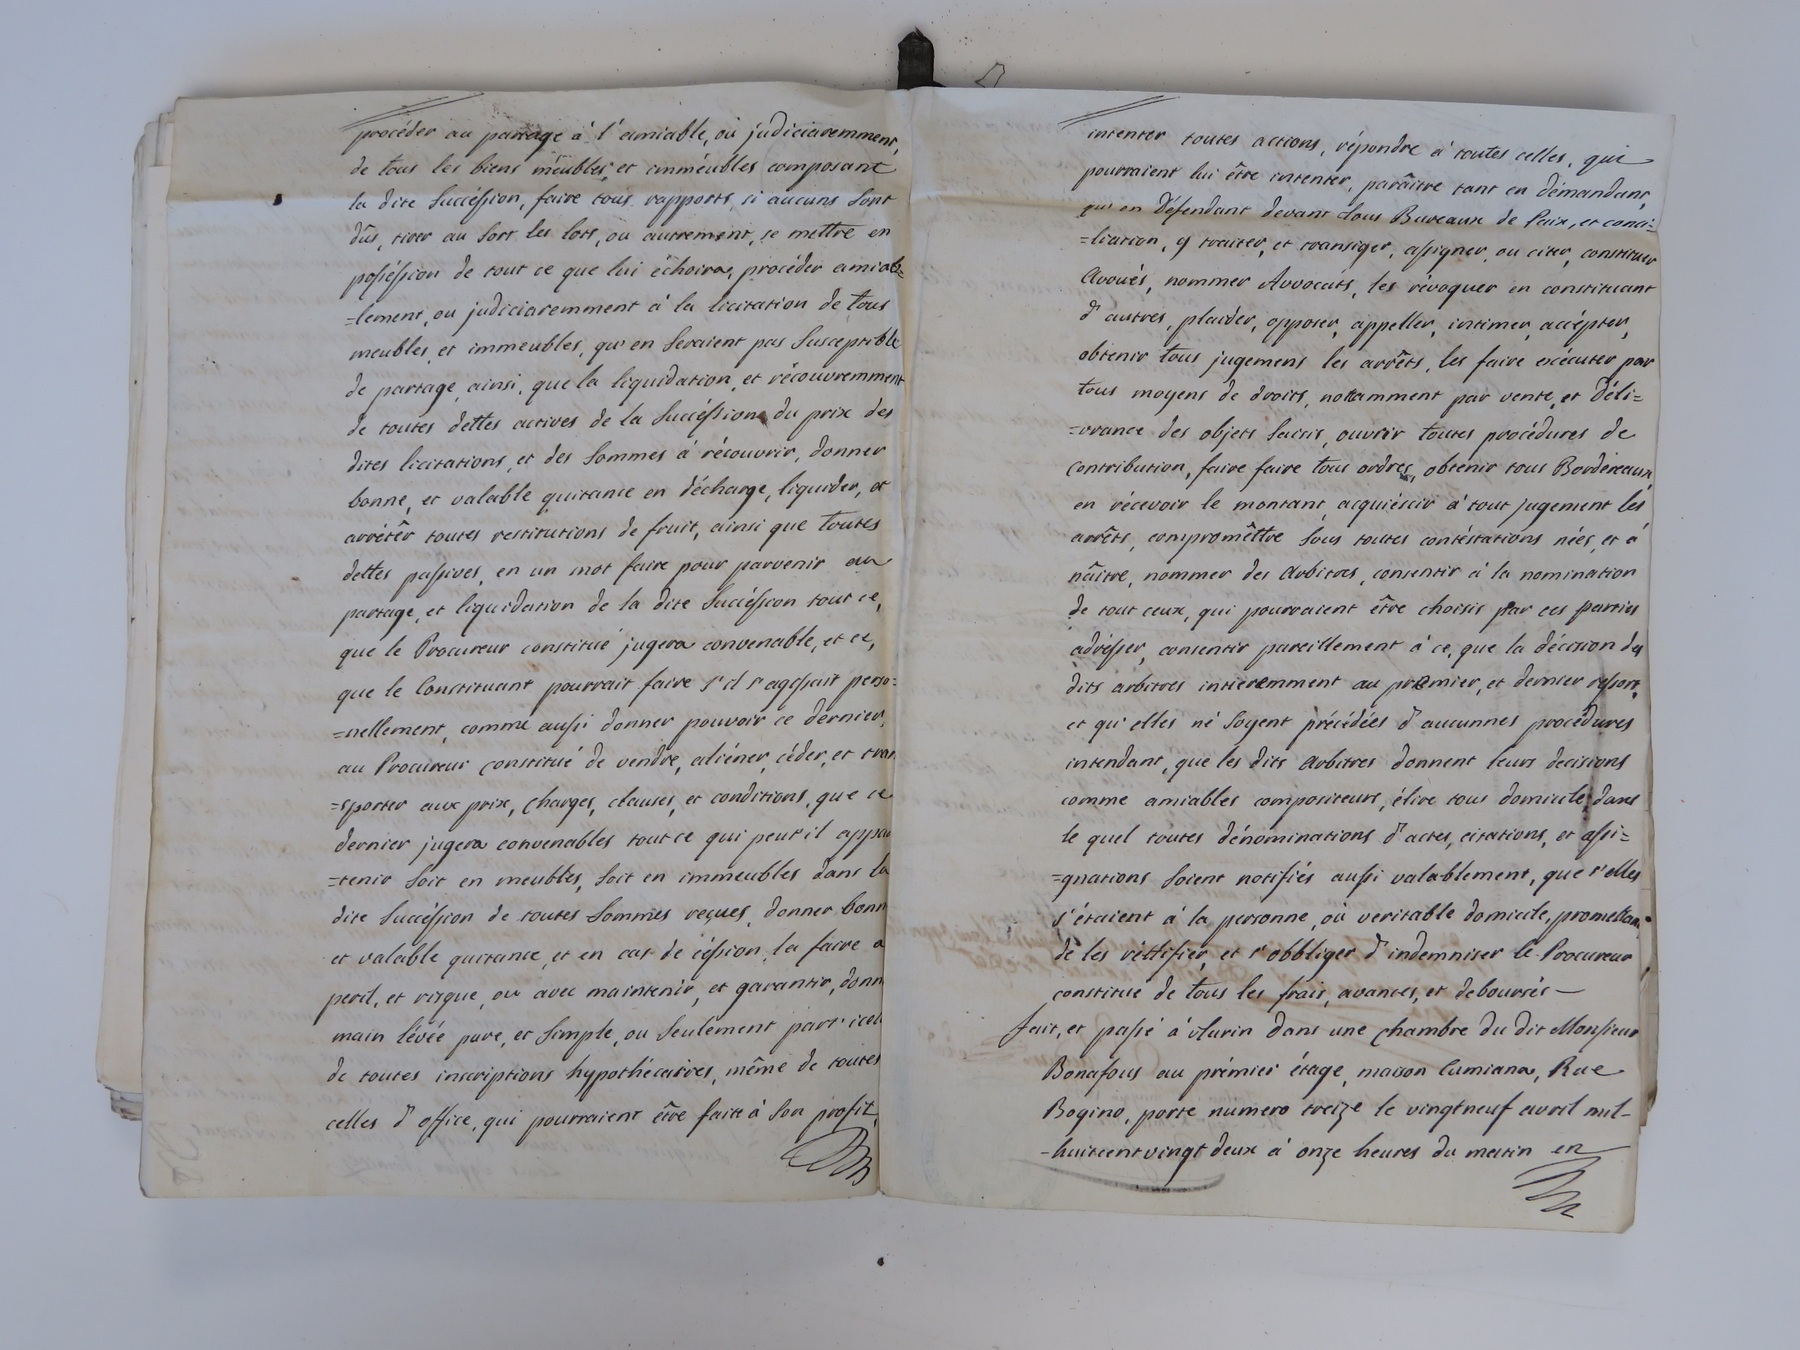 procéder au partage à l'amiable, où judiciaremment,
de tous les biens méubles, et imméubles composant
la dite Succéssion, faire tous rapports, si aucuns sont
dûs, tirer au sort les lots, ou autrement, se mettre en
posséssion de tout ce que lui échoira, procéder amiab=
=lement, ou judiciaremment à la licitation de tous
meubles, et immeubles, qu'en seraient pas susceptible
de partage, ainsi, que la liquidation, et récouvremment
de toutes dettes actives de la Succéssion, du prix des
dites licitations, et des sommes à récouvrir, donner
bonne, et valable quitance en décharge, liquider, et
arrêtêr toutes restitutions de fruit, ainsi que toutes
dettes passives, en un mot faire pour parvenir au
partage, et liquidation de la dite Succéssion tout ce,
que le Procureur constitué jugera convenable, et ce,
que le Constituant pourrait faire s'il s'agessait perso=
=nellement, comme aussi donner pouvoir ce dernier,
au Procureur constitué de vendre, aliéner, céder, et tran
=sporter aux prix, charges, clauses, et conditions, que ce
dernier jugera convenables tout ce qui peut'il appar
=tenir soit en meubles, soit en immeubles dans la
dite Succéssion de toutes sommes reçues, donner bonn
et valable quitance, et en cas de céssion, la faire a
peril, et risque, ou avec maintenir, et garantir, donn
main lévée pure, et simple, ou seulement part'icel
de toutes inscriptions hypothécaires, même de toutes
celles d'office, qui pourraient être faite à son profit,
intenter toutes actions, répondre à toutes celles, qui
pourraient lui être intenter, parâitre tant en démandant,
qu'en Défendant devant tous Bureaux de Paix, et conci=
=liation, y traiter, et transiger, assigner, ou citer, constituer
Avoués, nommer Avvocats, les révoquer en constituant
d'autres, plaider, opposer, appeller, intimer, accépter,
obtenir tous jugemens les arrêts, les faire exécuter par
tous moyens de droits, notamment par vente, et déli=
=vrance des objets saisis, ouvrir toutes procédures de
contribution, faire faire tous ordres, obtenir tous Bordereaux,
en récevoir le montant, acquiéscir à tout jugement les
arrêts, compromêttre sous toutes contéstations nées, et à
nâitre, nommer des Arbitres, consentir à la nomination
de tout ceux, qui pourraient être choisis par ces parties
adrésser, consentir pareillement à ce, que la décision des
dits arbitres intieremment au premier, et dernier ressort,
et qu'elles né soyent précédées d'aucunnes procédures
intendant, que les dits Arbitres donnent leurs decisions
comme amiables compositeurs, élire tous domicile, dans
le quel toutes dénominations d'actes, citations, et assi=
=gnations soient notifiés aussi valablement, que s'elles
s'étaient à la personne, où veritable domicile, promettan
de les réttifier, et s'obbliger d'indemniser le Procureur
constitué de tous les frais, avances, et deboursés —
fait, et passé à Turin dans une chambre du dit Monsieur
Bonafous au prémier étage, maison Cumiana, Rue
Bogino, porte numero treize le vingtneuf avril mil-
-huitcentvingt deux à onze heures du matin en